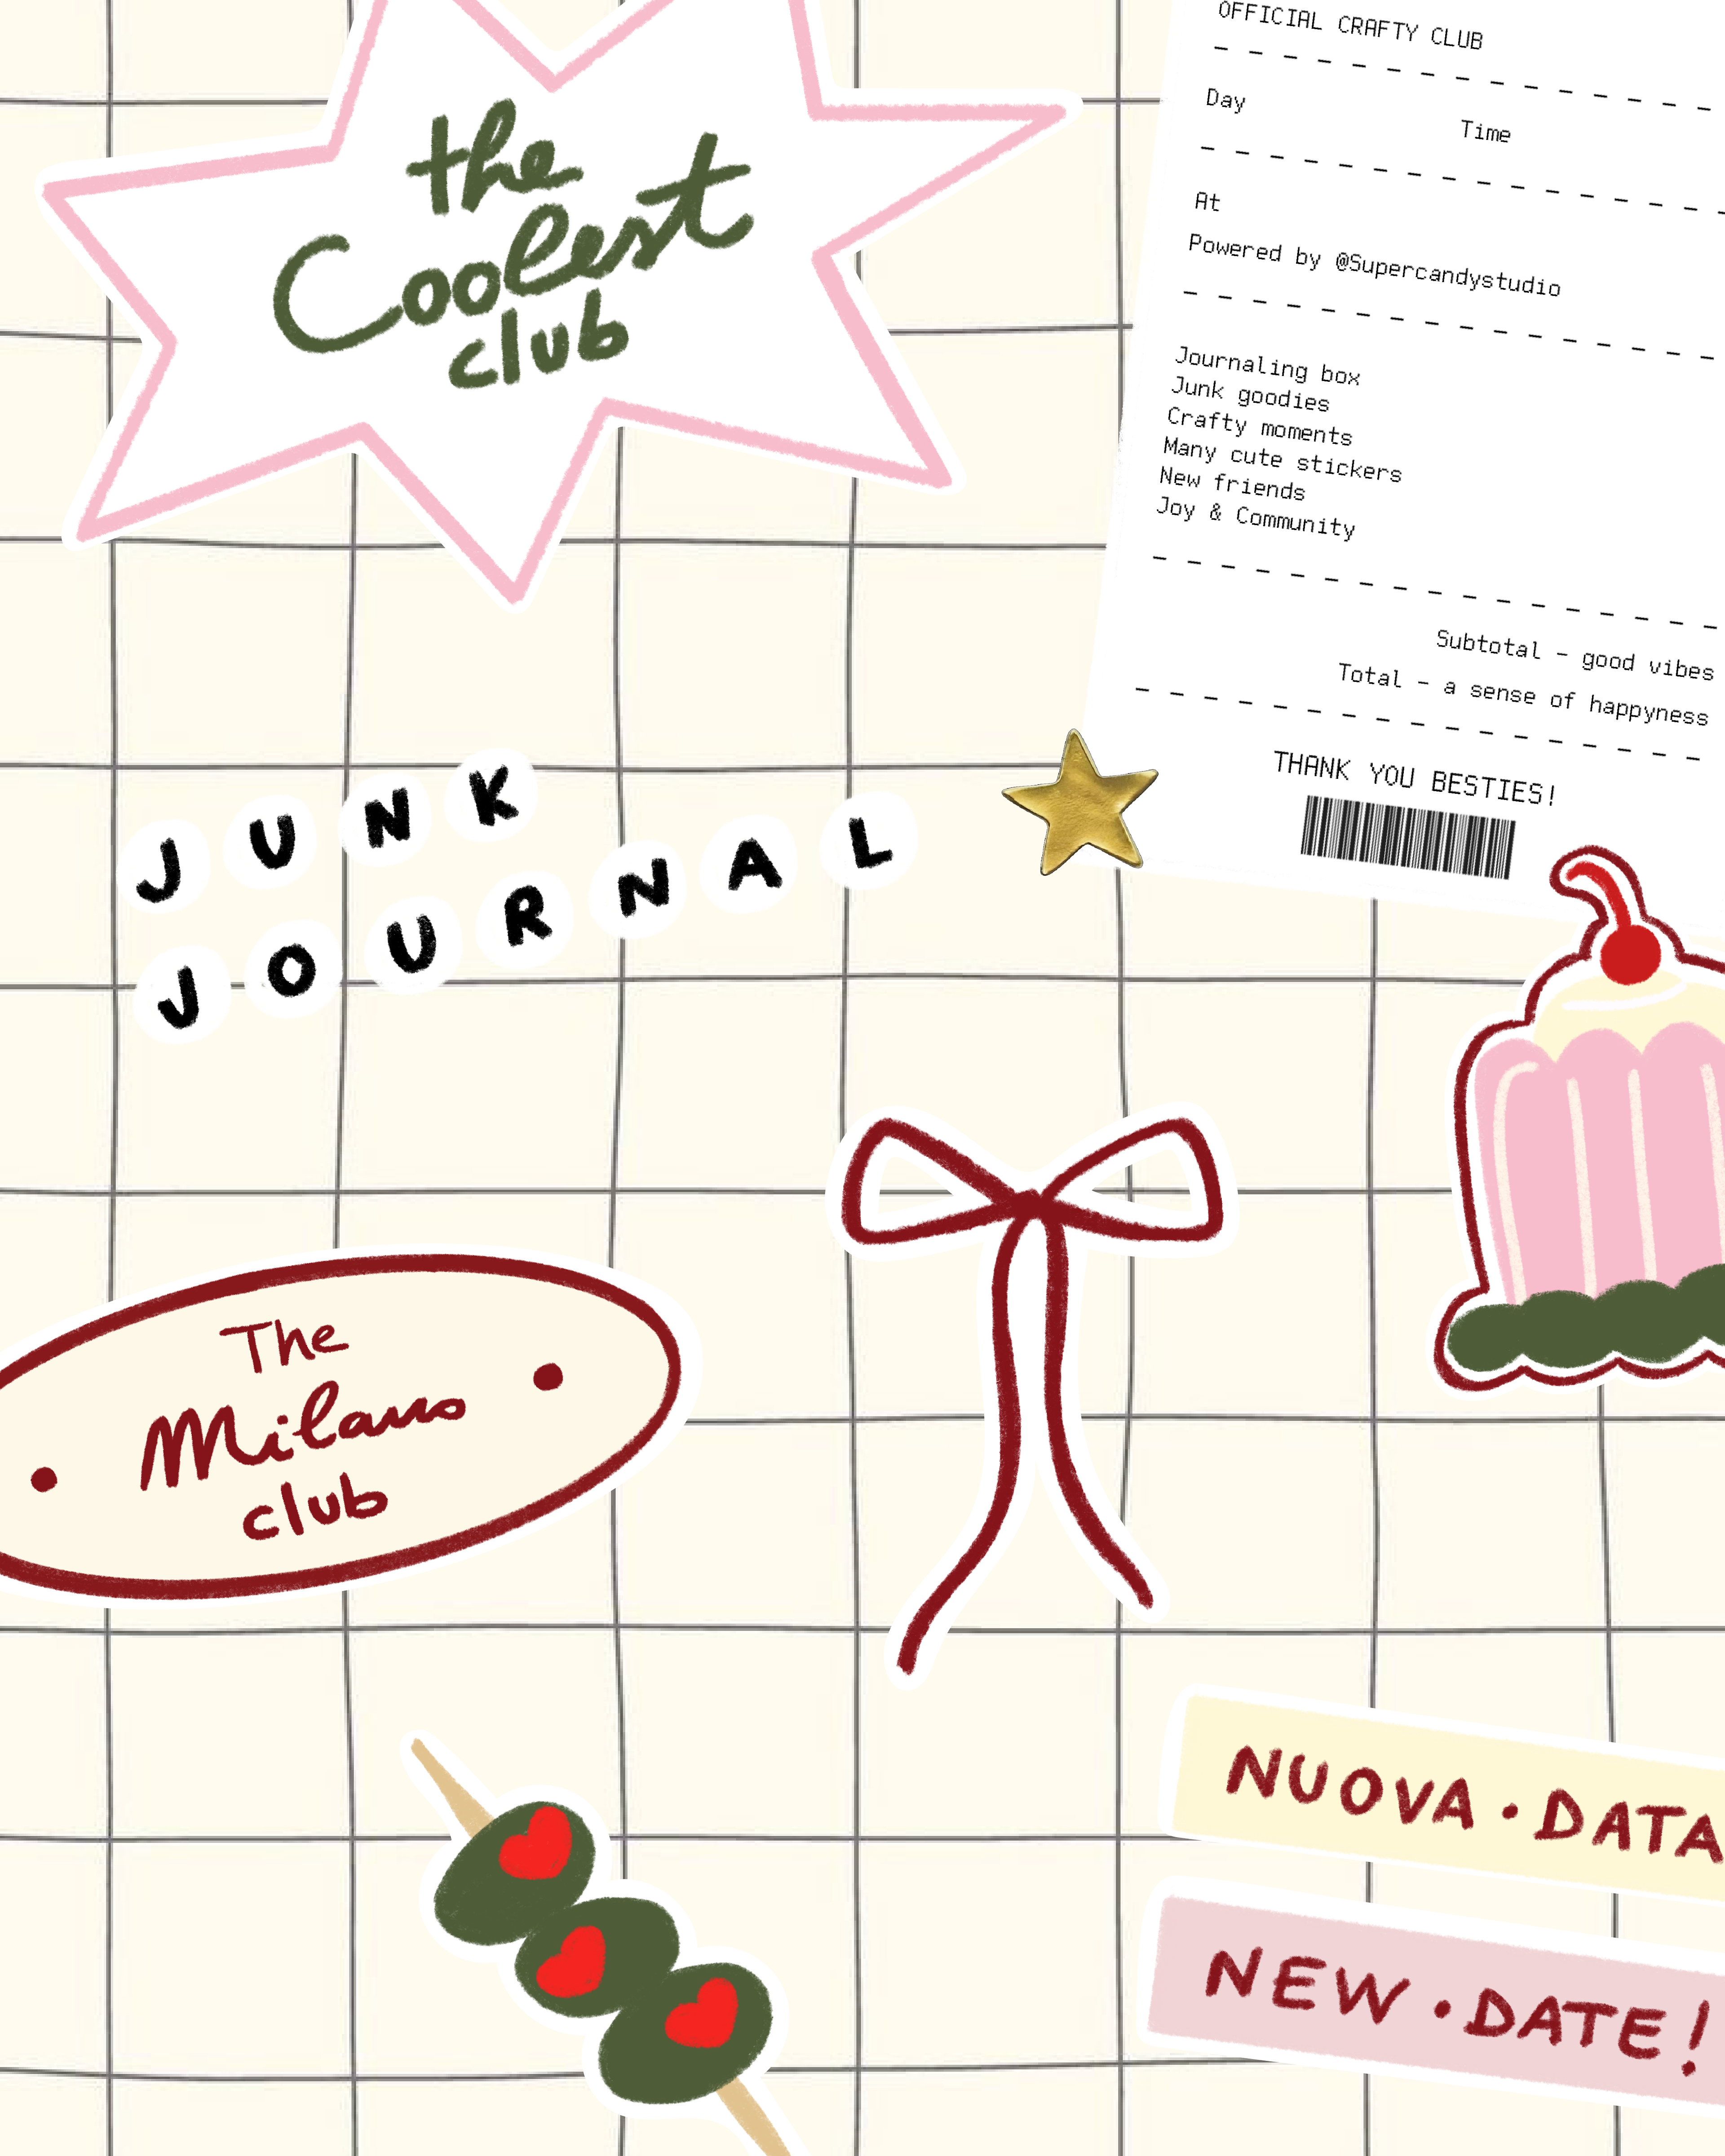 the
Coolest
club
OFFICIAL CRAFTY CLUB
Day
Time
At
Powered by @Supercandystudio
Journaling box
Junk goodies
Crafty moments
Many cute stickers
New friends
Joy & Community
Subtotal - good vibes
Total - a sense of happyness
THANK YOU BESTIES!
JUNK
JOURNAL
The
Milano
club
NUOVA • DATA
NEW • DATE!